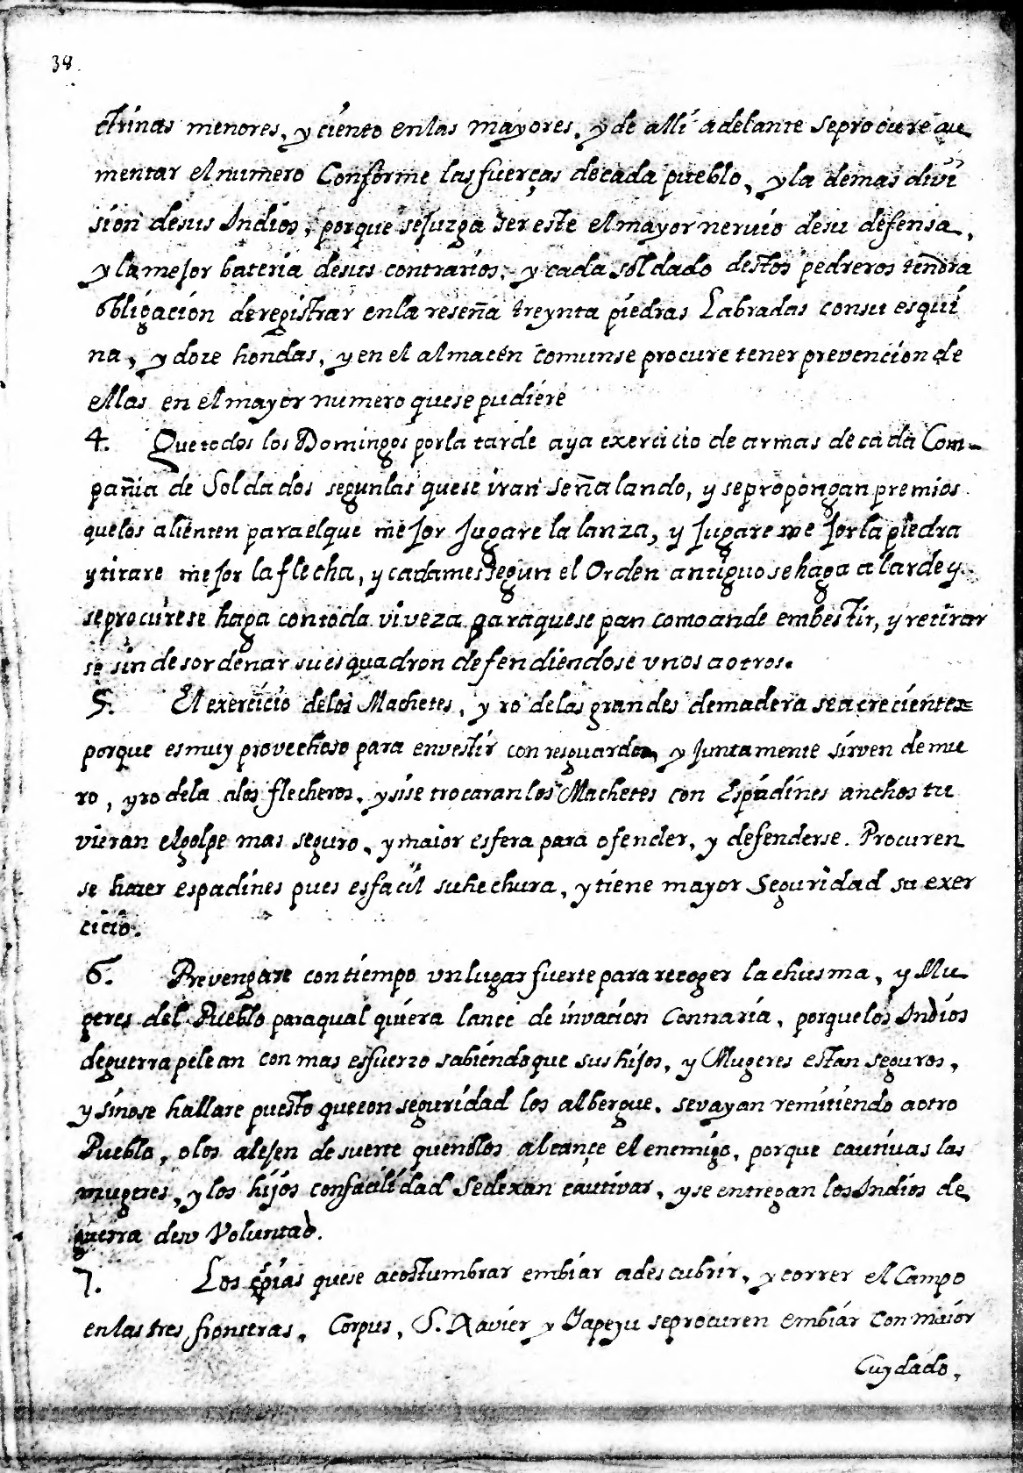 38
ctrinas menores, y ciento enlas mayores, y de alli adelante seprocure au
mentar el numero Conforme las fuerças decada pueblo, y la demas divi
sion desus Indios, porque sejuzga ser este el mayor neruio desu defensa,
y la mejor bateria desus contrarios; y cada soldado destos pedreros tendra
obligacion deregistrar enla reseña treynta piedras Labradas consu esqui
na, y doze hondas, y en el almacen comun se procure tener prevencion de
ellas en el mayor numero quese pudiere
4. Que todos los Domingos por la tarde aya exercicio de armas de cada Com-
pañia de Soldados segun las quese iran señalando, y se propongan premios
quelos alienten para el que mejor Jugare la lanza, y Jugare mejor la piedra
y tirare mejor la flecha, y cada mes segun el Orden antiguo se haga alarde y
se procurese haga con toda viveza para quese pan como ande embestir, y retirar
se sin desordenar su esquadron defendiendose unos a otros.
5. El exercicio delos Machetes, y ro delas grandes demadera sea creciente
porque es muy provechoso para envestir con resguardo, y Juntamente sirven de mu
ro, y rodela alos flecheros, y si se trocaran los Machetes con Espadines anchos tu
vieran el golpe mas seguro, y maior esfera para ofender, y defenderse. Procuren
se hazer espadines pues es facil su hechura, y tiene mayor Seguridad su exer
cicio.
6. Prevengase con tiempo un lugar fuerte para recoger la chusma, y Mu
geres del Pueblo para qual quiera lance de invacion Connaria, porque los Indios
de guerra pelean con mas esfuerzo sabiendo que sus hijos, y Mugeres estan seguros,
y sinose hallare puesto que con seguridad los albergue, sevayan remitiendo a otro
Pueblo, o los alejen de suerte quenolos alcançe el enemigo, porque cautivas las
mugeres, y los hijos con facilidad Sedexan cautivar, y se entregan los Indios de
guerra desu Voluntad.
7. Los espias quese acostumbrar embiar a descubrir, y correr el Campo
en las tres fronteras, Corpus, S. Xavier y Iapeyu se procuren embiar con maior
Cuydado,